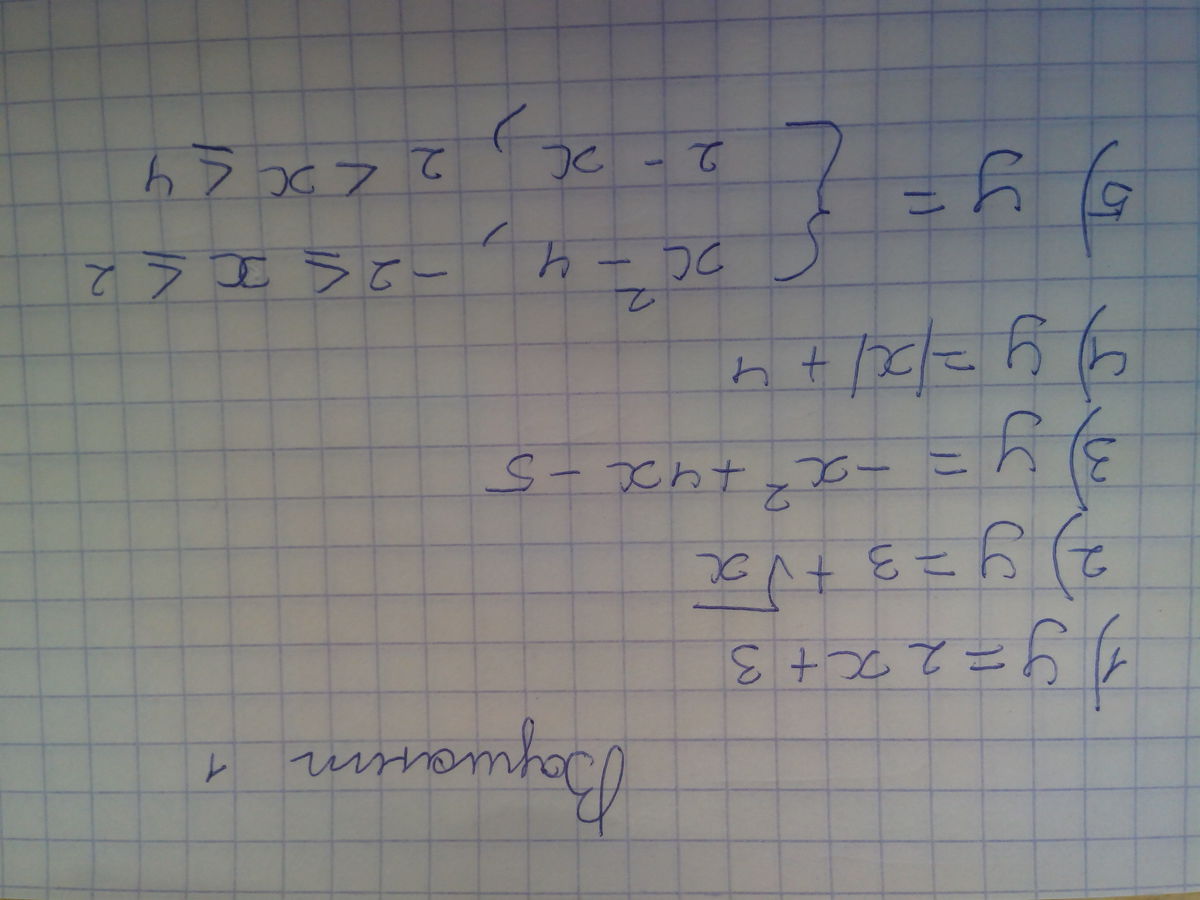 Вариант 1
1) y = 2x + 3
2) y = 3 + √x
3) y = -x² + 4x - 5
4) y = |x| + 4
5) y = { x² - 4, -2 ≤ x ≤ 2
2 - x, 2 < x ≤ 4